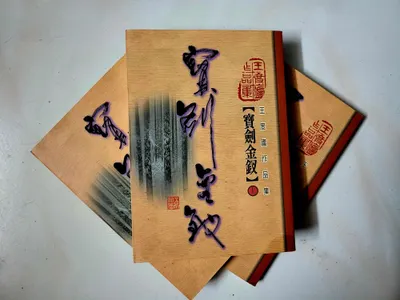 寶劍金釵
王度廬作品集
王度廬作品集
【寶劍金釵】
寶